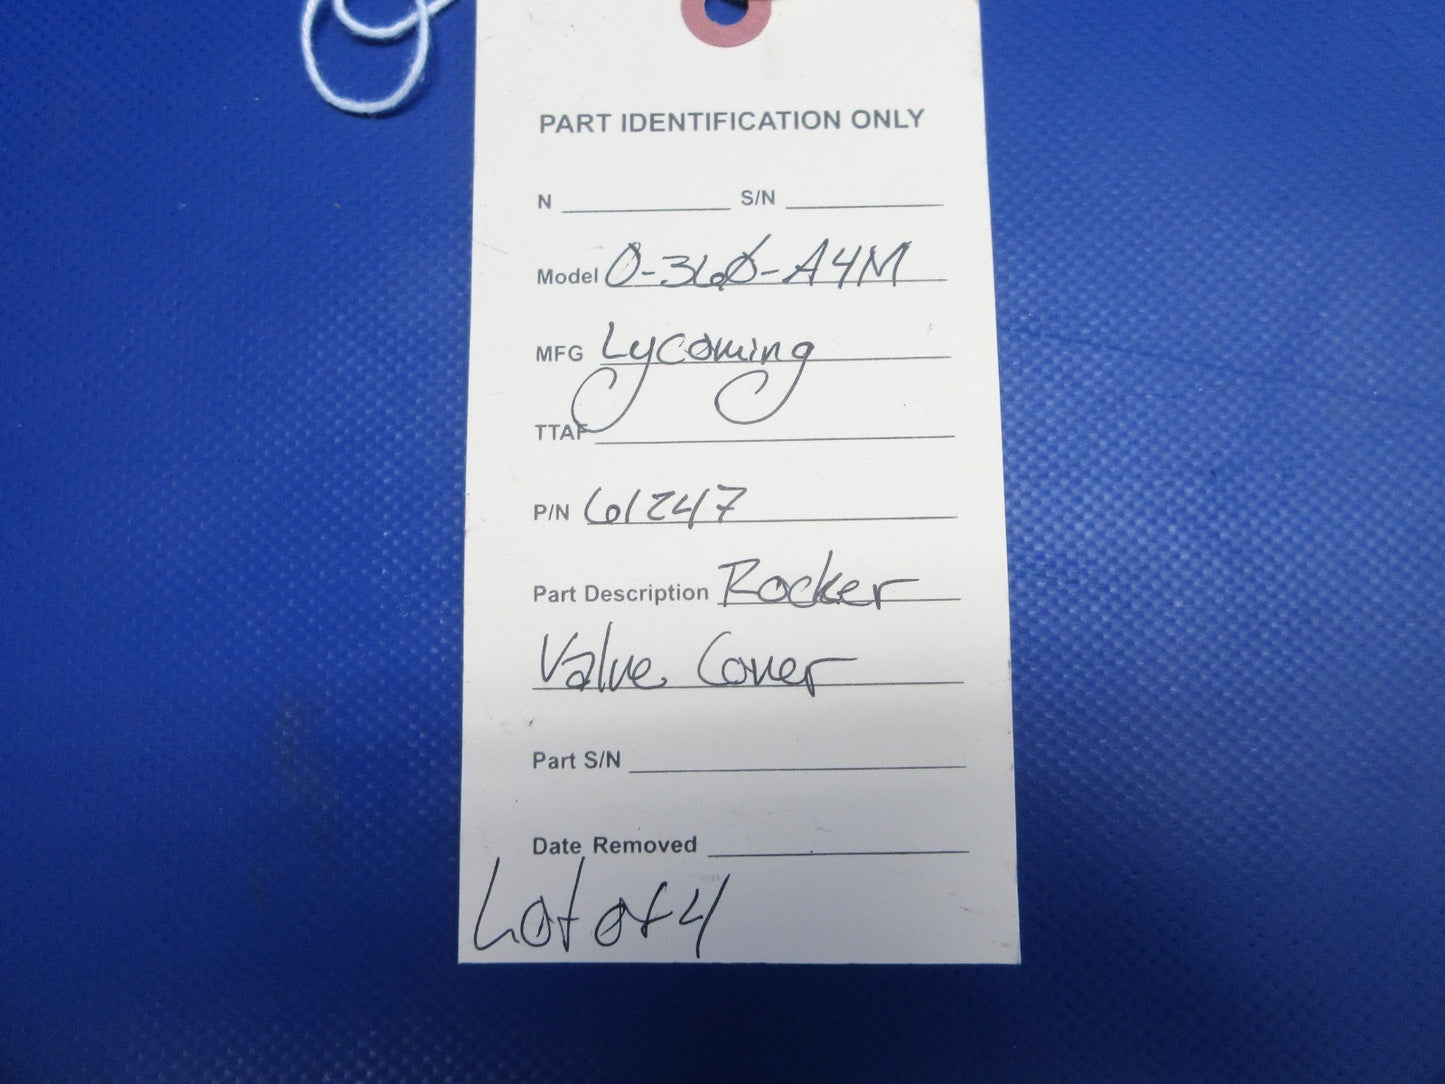 PART IDENTIFICATION ONLY
N S/N
Model O-360-A4M
MFG Lycoming
TTAF
P/N 61247
Part Description Rocker
Valve Cover
Part S/N
Date Removed
Lot of 4